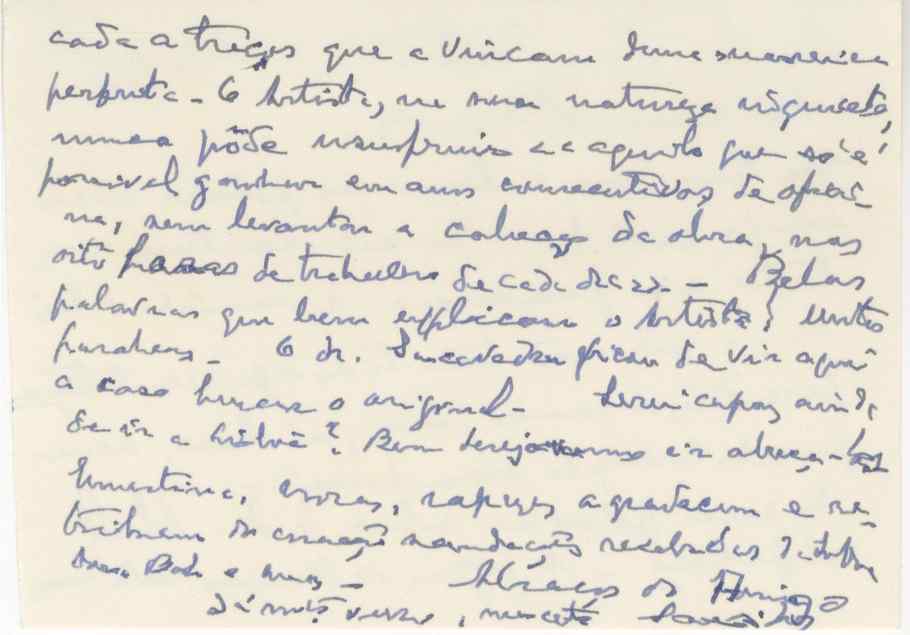 cada a traços que a vincam duma maneira
perfeita - O Artista, na sua natureza inquieta,
nunca pôde usufruir aquilo que só é
possível ganhar em anos consecutivos de ofici-
na, nem levantar a cabeça da obra, nas
oito horas de trabalho de cada dia - Belas
palavras que bem explicam o Artista; muitos
parabens - O dr. ficou de vir aqui
a casa buscar o original - Serei capaz ainda
de ir a Lisboa? Bem desejavamos ir abraça-los
Ernestina, noras, rapazes agradecem e re-
tribuem do coração saudações recebidas
Abraços do Amigo